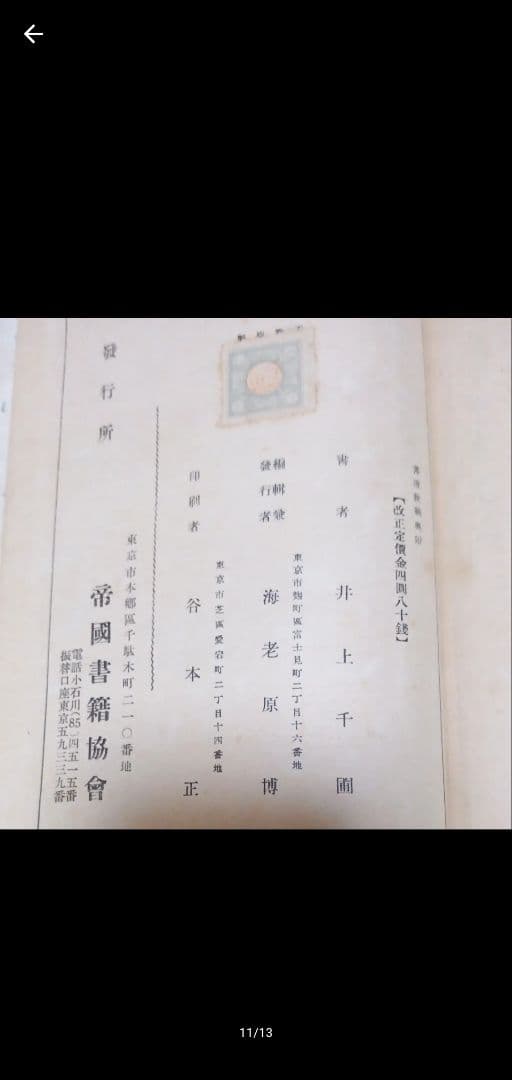 【改正定價金四圓八十錢】
書者 井上千圃
東京市麹町區富士見町二丁目十六番地
編輯兼
發行者 海老原博
東京市芝區愛宕町二丁目十四番地
印刷者 谷本正
發行所
東京市本鄉區千駄木町二一〇番地
帝國書籍協會
電話小石川(85)四五一五番
振替口座東京五九三三九番
11/13